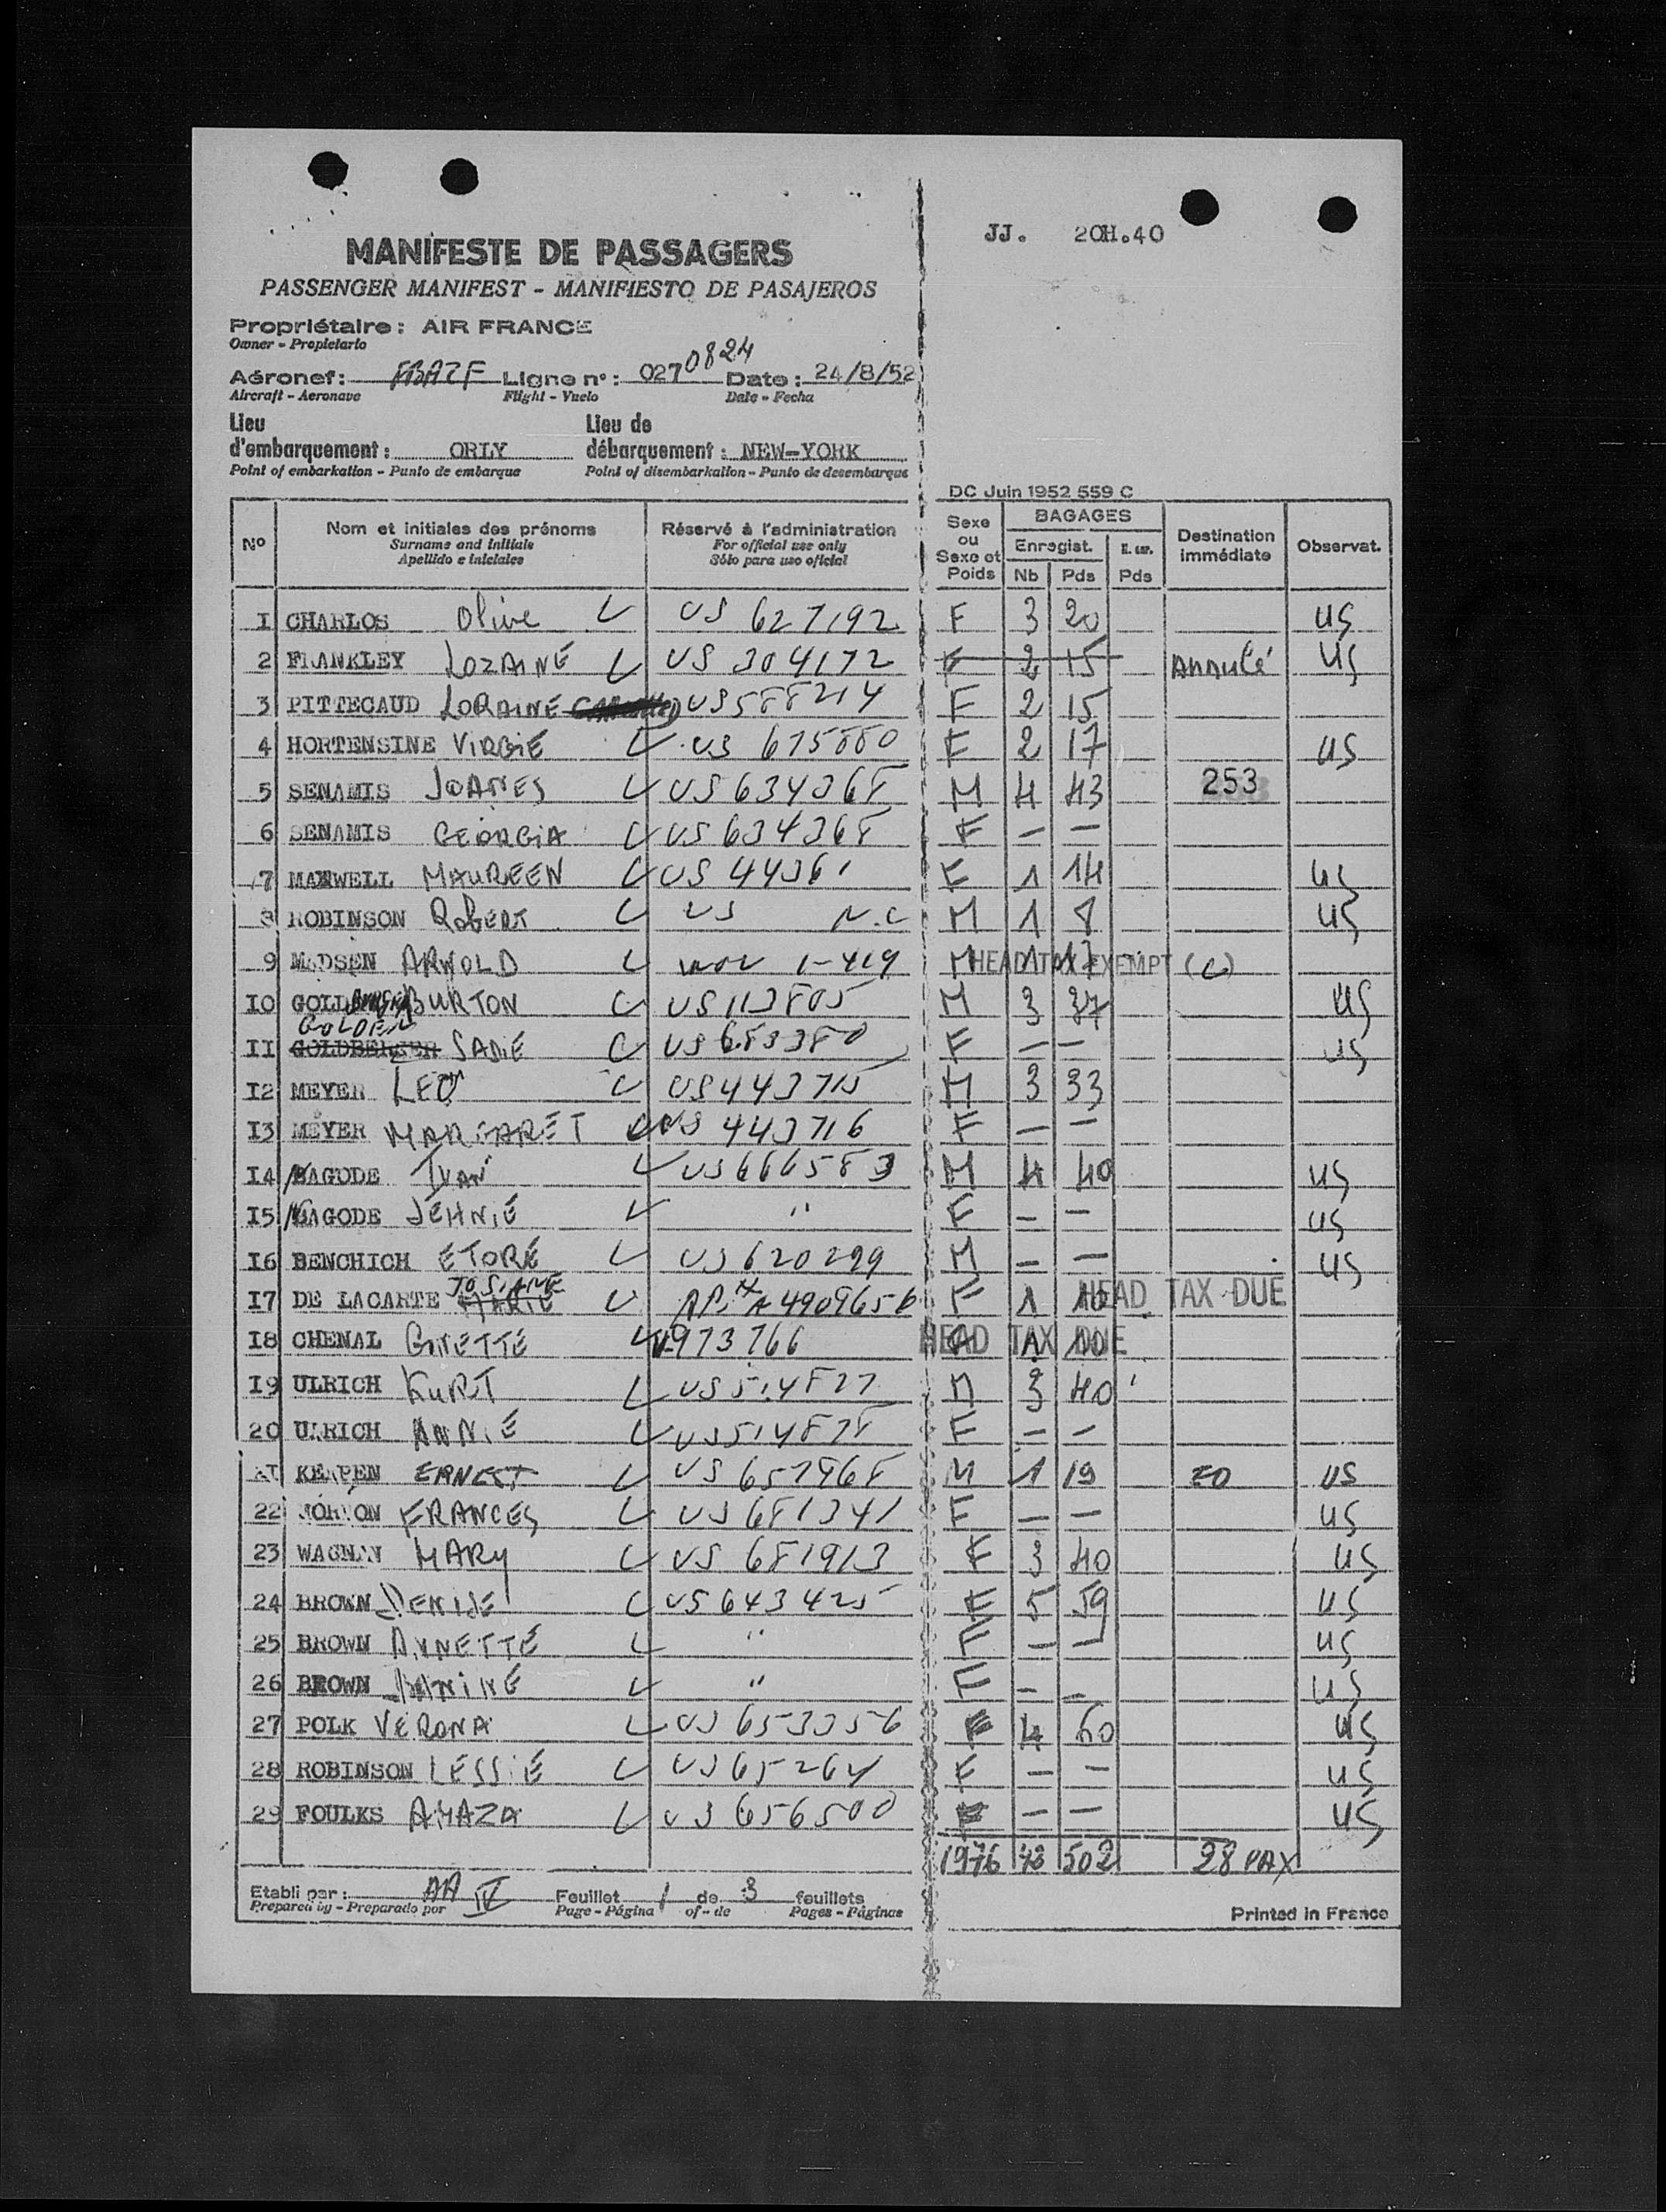 JJ. 20H.40
MANIFESTE DE PASSAGERS
PASSENGER MANIFEST - MANIFIESTO DE PASAJEROS
Propriétaire : AIR FRANCE
Owner - Propietario
Aéronef : FBAZF Ligne n° : 027 0824 Date : 24/8/52
Aircraft - Aeronave Flight - Vuelo Date - Fecha
Lieu d'embarquement : ORLY Lieu de débarquement : NEW-YORK
Point of embarkation - Punto de embarque Point of disembarkation - Punto de desembarque
DC Juin 1952 559 C
N° Nom et initiales des prénoms Réservé à l'administration Sexe ou Sexe et Poids BAGAGES Destination immédiate Observat.
Surname and initials For official use only Enregist.
Apellido e iniciales Sólo para uso oficial Nb Pds Pds
I CHARLOS Olive US 627192 F 3 20 US
2 FRANKLEY LORAINE US 304172 F 2 15 Annulé US
3 PITTECAUD LORAINE US 588214 F 2 15
4 HORTENSINE VIRGIE US 675880 F 2 17 US
5 SENAMIS JOANES US 634368 M 4 43 253
6 SENAMIS GEORGIA US 634368 F — —
7 MAXWELL MAUREEN US 44361 F 1 14 US
8 ROBINSON RobERT US N.C M 1 8 US
9 MADSEN ARNOLD 1-419 M 1 17 HEAD TAX EXEMPT (C)
IO BURTON US 113805 M 3 37 US
II GOLDEN GOLDBERGER SADIE US 683380 F — — US
I2 MEYER LEO US 443715 M 3 33
I3 MEYER MARGARET US 443716 F — —
I4 NAGODE IVAN US 666583 M 4 40 US
I5 NAGODE JEHNIE " F — — US
I6 BENCHICH ETORE US 620299 M — — US
I7 DE LACARTE JOSIANE MARIE 4909656 F 1 10 HEAD TAX DUE
I8 CHENAL GINETTE 973766 HEAD TAX DUE 1 10
I9 ULRICH KURT US 514827 M 3 40
20 ULRICH ANNIE US 514828 F — —
2I KEMPEN ERNEST US 657968 M 1 19 EO US
22 NORTON FRANCES US 681341 F — — US
23 WAGMAN MARY US 681913 F 3 40 US
24 BROWN DENISE US 643425 F 5 59 US
25 BROWN ANNETTE " F — — US
26 BROWN JANINE " F — — US
27 POLK VERONA US 653356 F 4 60 US
28 ROBINSON LESSIE US 65264 F — — US
29 FOULKS AMAZA US 656500 F — — US
1976 43 502 28 PAX
Etabli par : AA IV Feuillet 1 de 3 feuillets
Prepared by - Preparado por Page - Página of - de Pages - Páginas
Printed in France